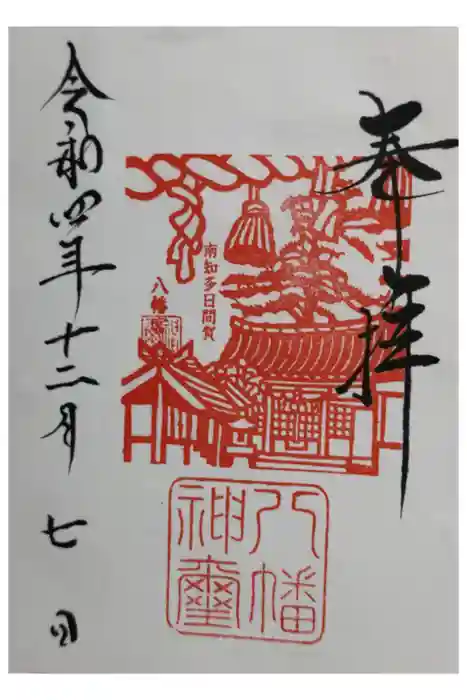 奉拝
南知多日間賀
八幡
八幡
神璽
令和四年十二月七日